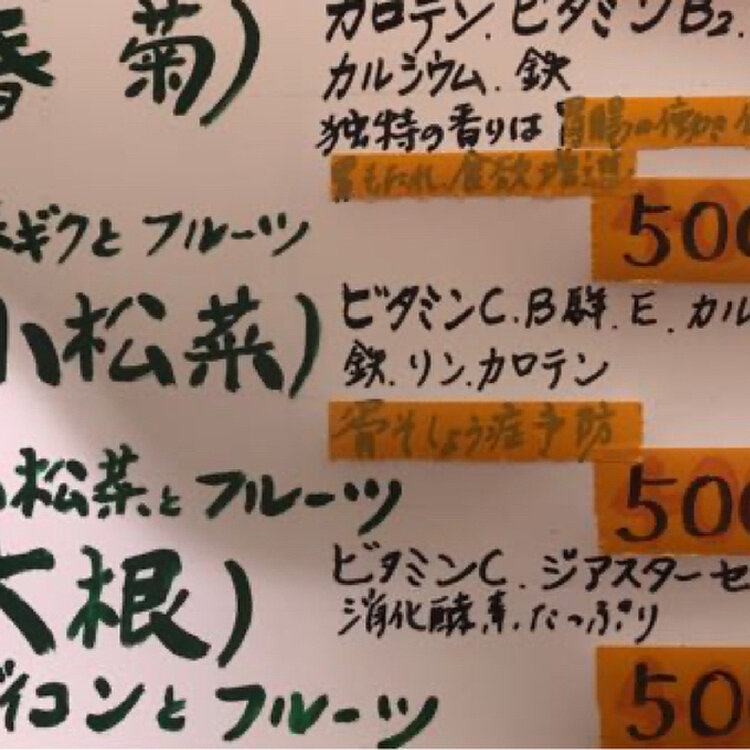 春菊)
カロテン.ビタミンB2.
カルシウム.鉄
独特の香りは胃腸の働き
胃もたれ.食欲増進
ギクとフルーツ
500
小松菜)
ビタミンC.B群.E.カル
鉄.リン.カロテン
骨そしょう症予防
小松菜とフルーツ
500
大根)
ビタミンC.ジアスターゼ
消化酵素.たっぷり
イコンとフルーツ
500